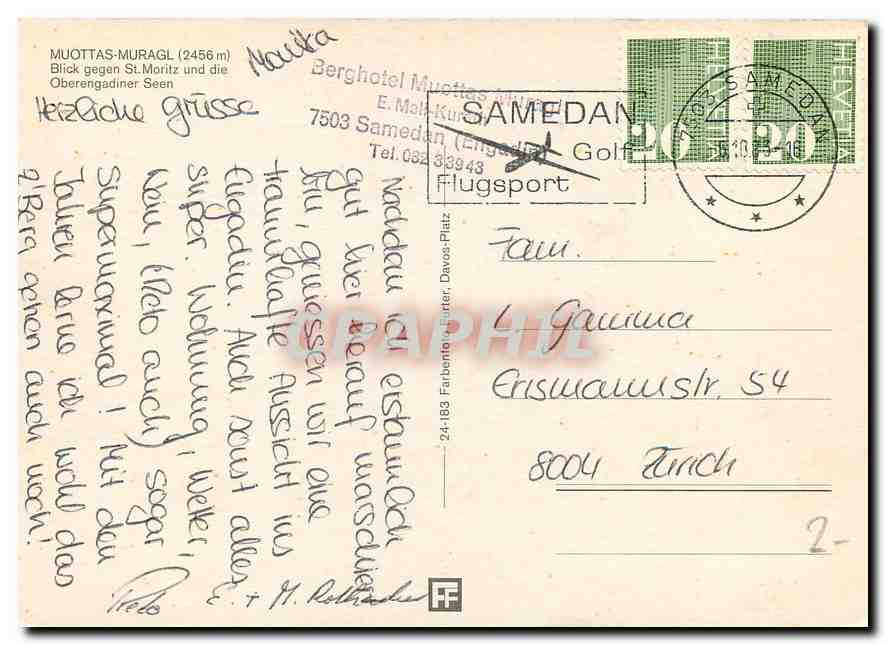 MUOTTAS-MURAGL (2456 m)
Blick gegen St. Moritz und die
Oberengadiner Seen
Marika
Herzliche Grüsse
Berghotel Muottas Muragl
7503 Samedan (Engadin)
Tel. 082 33943
SAMEDAN
Golf
Flugsport
7503 SAMEDAN
HELVETIA
20
HELVETIA
20
Nachdem ich erstaunlich
gut hier herauf marschiert
bin, geniessen wir eine
traumhafte Aussicht ins
Engadin. Auch sonst alles
super. Wohnung, Wetter,
Wein, (Reto auch) sogar
supermaximal! Mit den
Jahren lerne ich wohl das
z'Berg gehen auch noch!
Reto E. + M.
24-183 Farbenfoto Furter, Davos-Platz
FF
Fam.
L. Gamma
Erismannstr. 54
8004 Zürich
2-
CPAPHIL